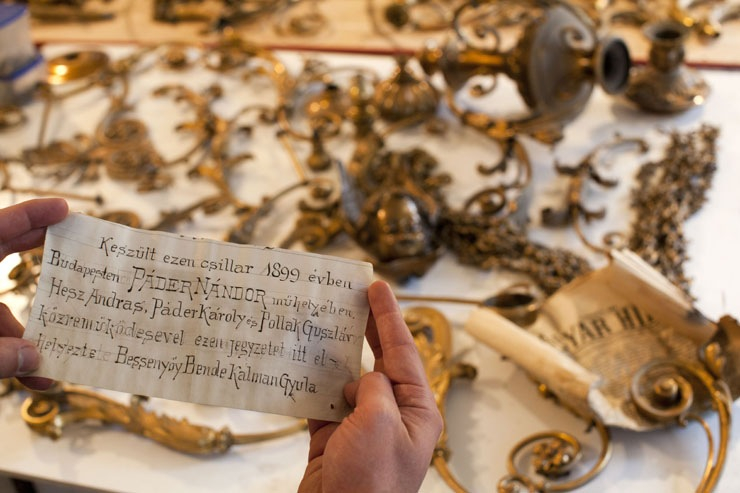 Keszült ezen csillar 1899 évben
Budapesten PÁDER NÁNDOR mühelyében.
Hesz Andras, Páder Károly és Pollák Gusztáv
közremüködesevel ezen jegyzetet itt el -
helyezte Bessenyőy Bende Kálman Gyula
YAR HI